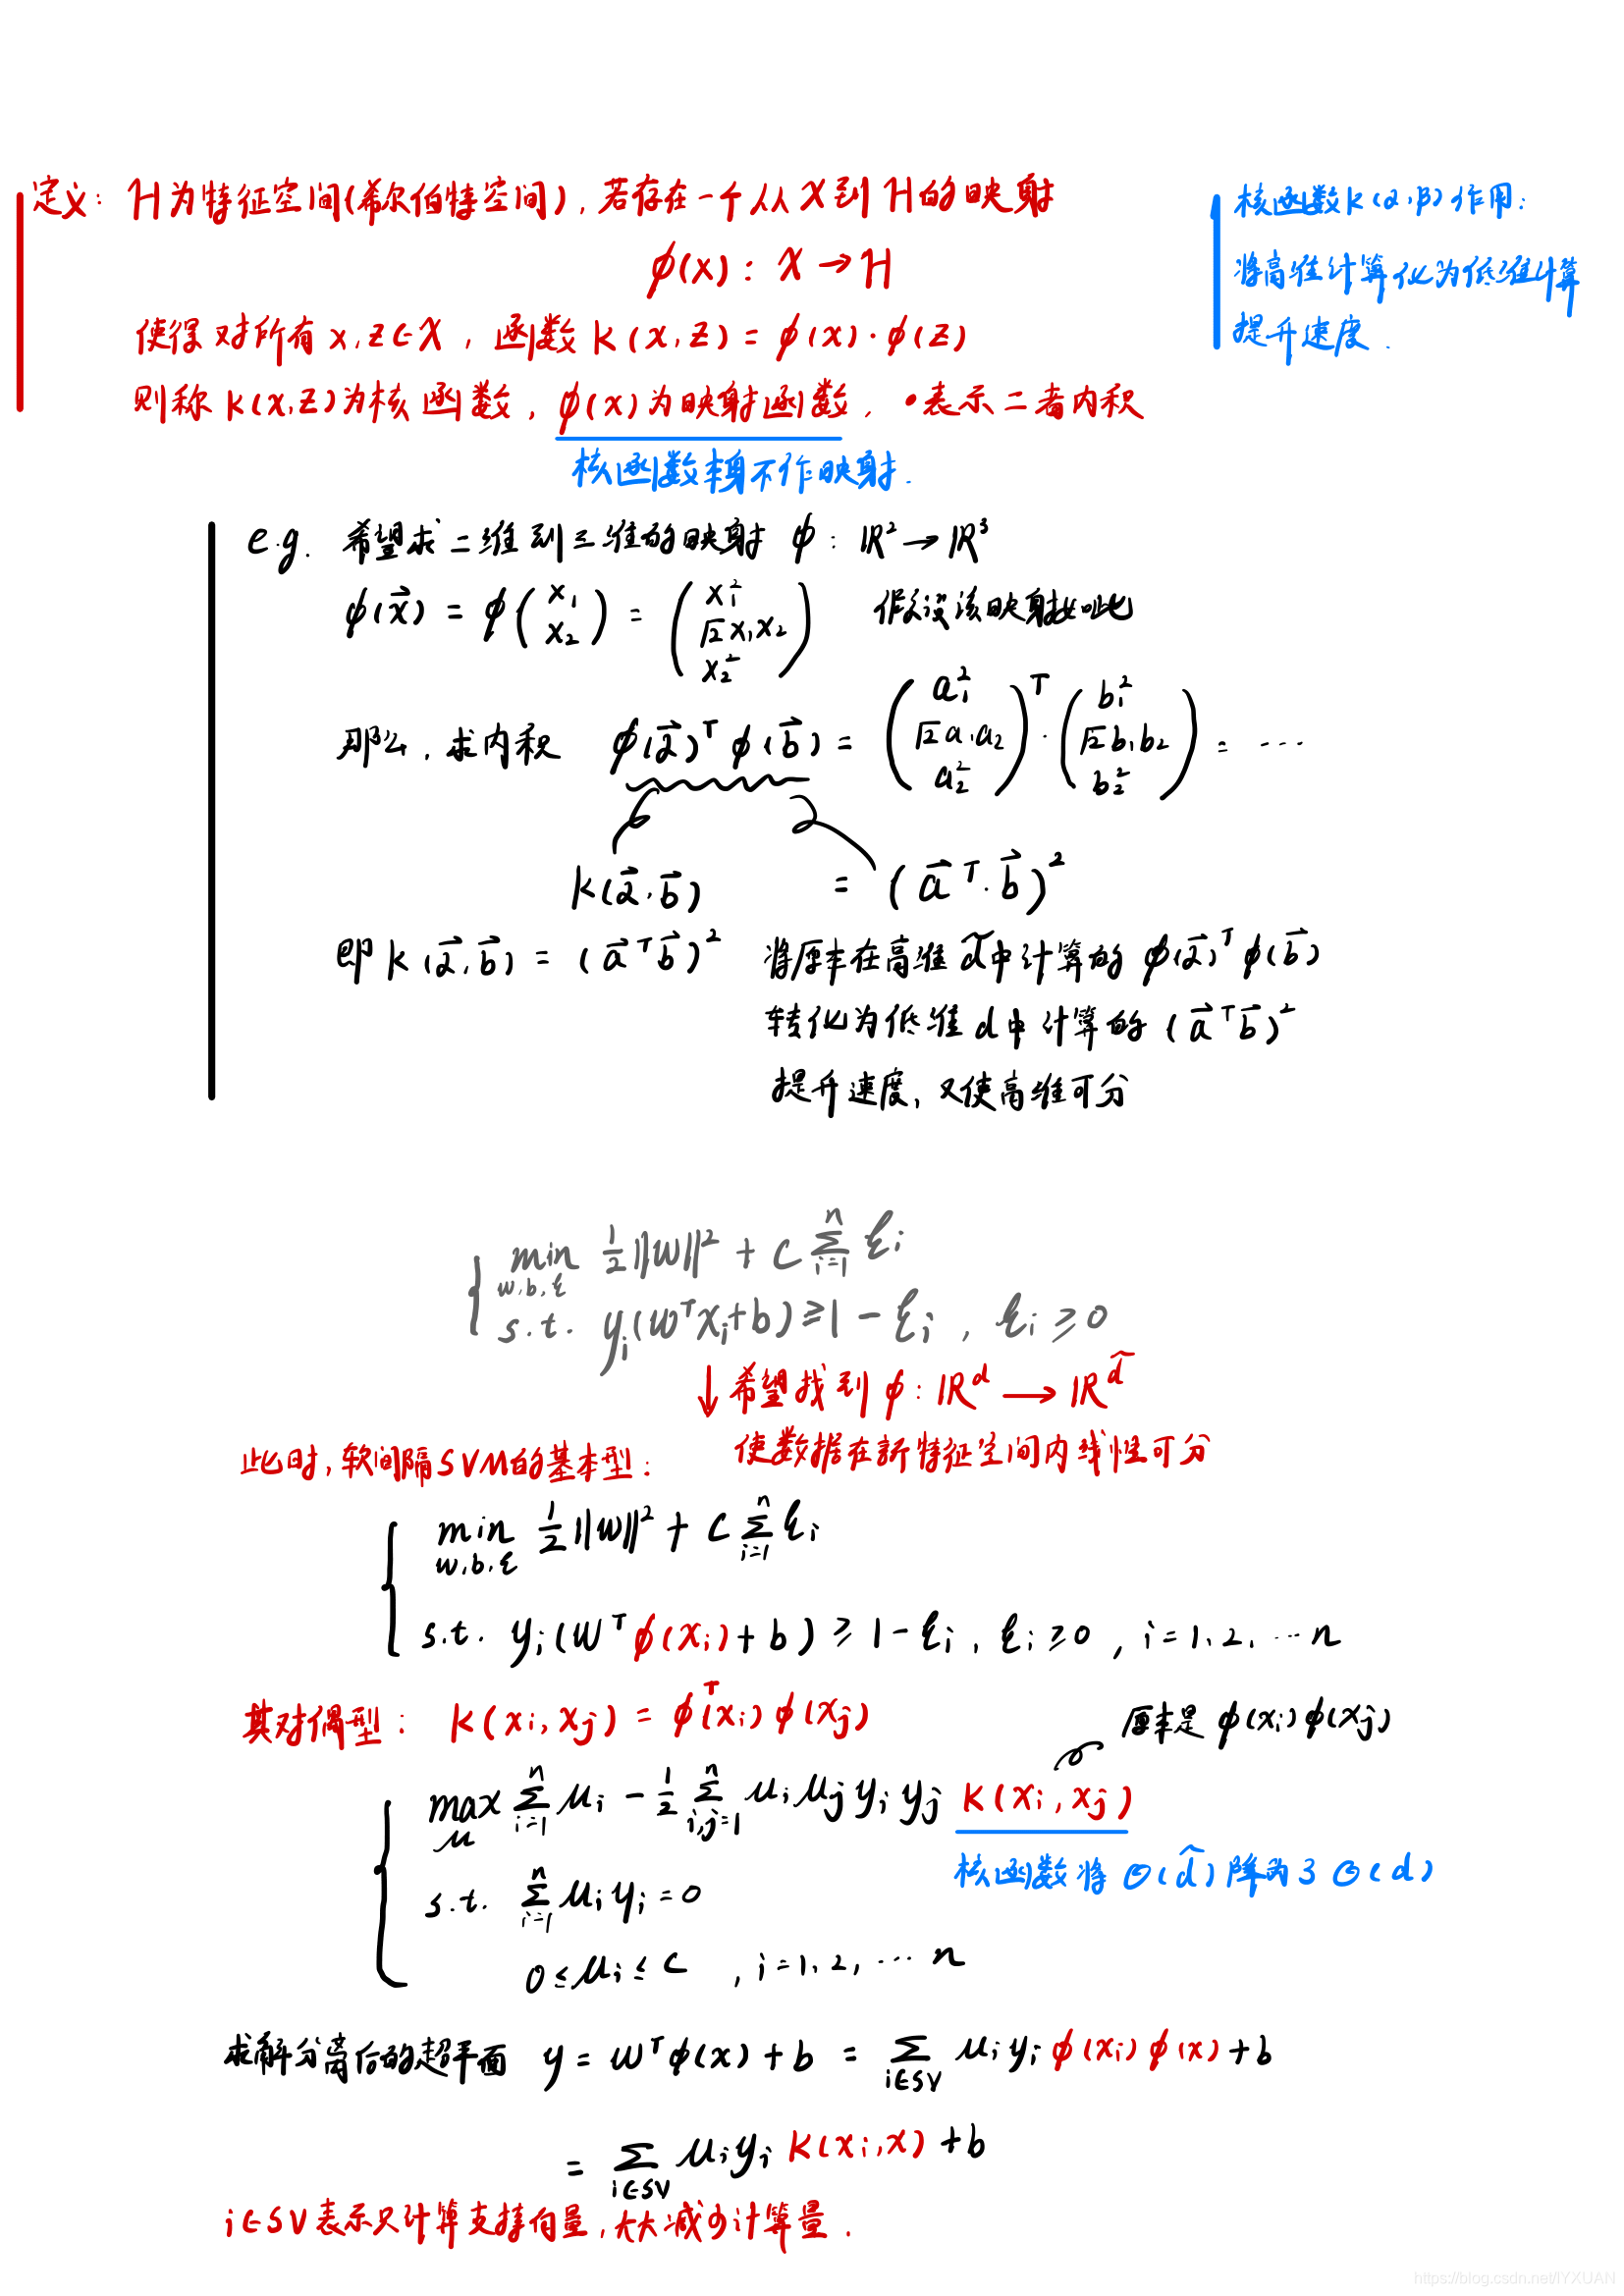 定义: H为特征空间(希尔伯特空间), 若存在一个从 X 到 H的映射
φ(x) : X → H
使得对所有 x,z∈X , 函数 K(x,z) = φ(x)·φ(z)
则称 K(x,z)为核函数, φ(x)为映射函数, •表示二者内积
核函数K(α,β)作用:
将高维计算化为低维计算
提升速度.
核函数本身不作映射.
e.g. 希望求二维到三维的映射 φ : ℝ² → ℝ³
φ(x⃗) = φ(x₁ x₂) = (x₁² √2x₁x₂ x₂²) 假设该映射如此
那么, 求内积 φ(a⃗)ᵀφ(b⃗) = (a₁² √2a₁a₂ a₂²)ᵀ·(b₁² √2b₁b₂ b₂²) = ...
K(a⃗,b⃗) = (a⃗ᵀ·b⃗)²
即 K(a⃗,b⃗) = (a⃗ᵀb⃗)² 将原本在高维 d̃中计算的 φ(a⃗)ᵀφ(b⃗)
转化为低维 d中计算的 (a⃗ᵀb⃗)²
提升速度, 又使高维可分
min w,b,ξ ½||w||² + C Σⁿᵢ₌₁ ξᵢ
s.t. yᵢ(wᵀxᵢ+b) ≥ 1 - ξᵢ , ξᵢ ≥ 0
↓ 希望找到 φ : ℝᵈ → ℝᵈ̂
使数据在新特征空间内线性可分
此时, 软间隔SVM的基本型:
min w,b,ξ ½||w||² + C Σⁿᵢ₌₁ ξᵢ
s.t. yᵢ(wᵀφ(xᵢ)+b) ≥ 1 - ξᵢ , ξᵢ ≥ 0 , i = 1,2,...n
其对偶型: K(xᵢ,xⱼ) = φᵀ(xᵢ)φ(xⱼ)
原本是 φ(xᵢ)φ(xⱼ)
max μ Σⁿᵢ₌₁ μᵢ - ½ Σⁿᵢ,ⱼ₌₁ μᵢμⱼyᵢyⱼ K(xᵢ,xⱼ)
核函数将 O(d̂)降为了 O(d)
s.t. Σⁿᵢ₌₁ μᵢyᵢ = 0
0 ≤ μᵢ ≤ C , i = 1,2,...n
求解分离后的超平面 y = wᵀφ(x) + b = Σ i∈SV μᵢyᵢφ(xᵢ)φ(x) + b
= Σ i∈SV μᵢyᵢ K(xᵢ,x) + b
i∈SV表示只计算支持向量, 大大减少计算量.
https://blog.csdn.net/IYXUAN